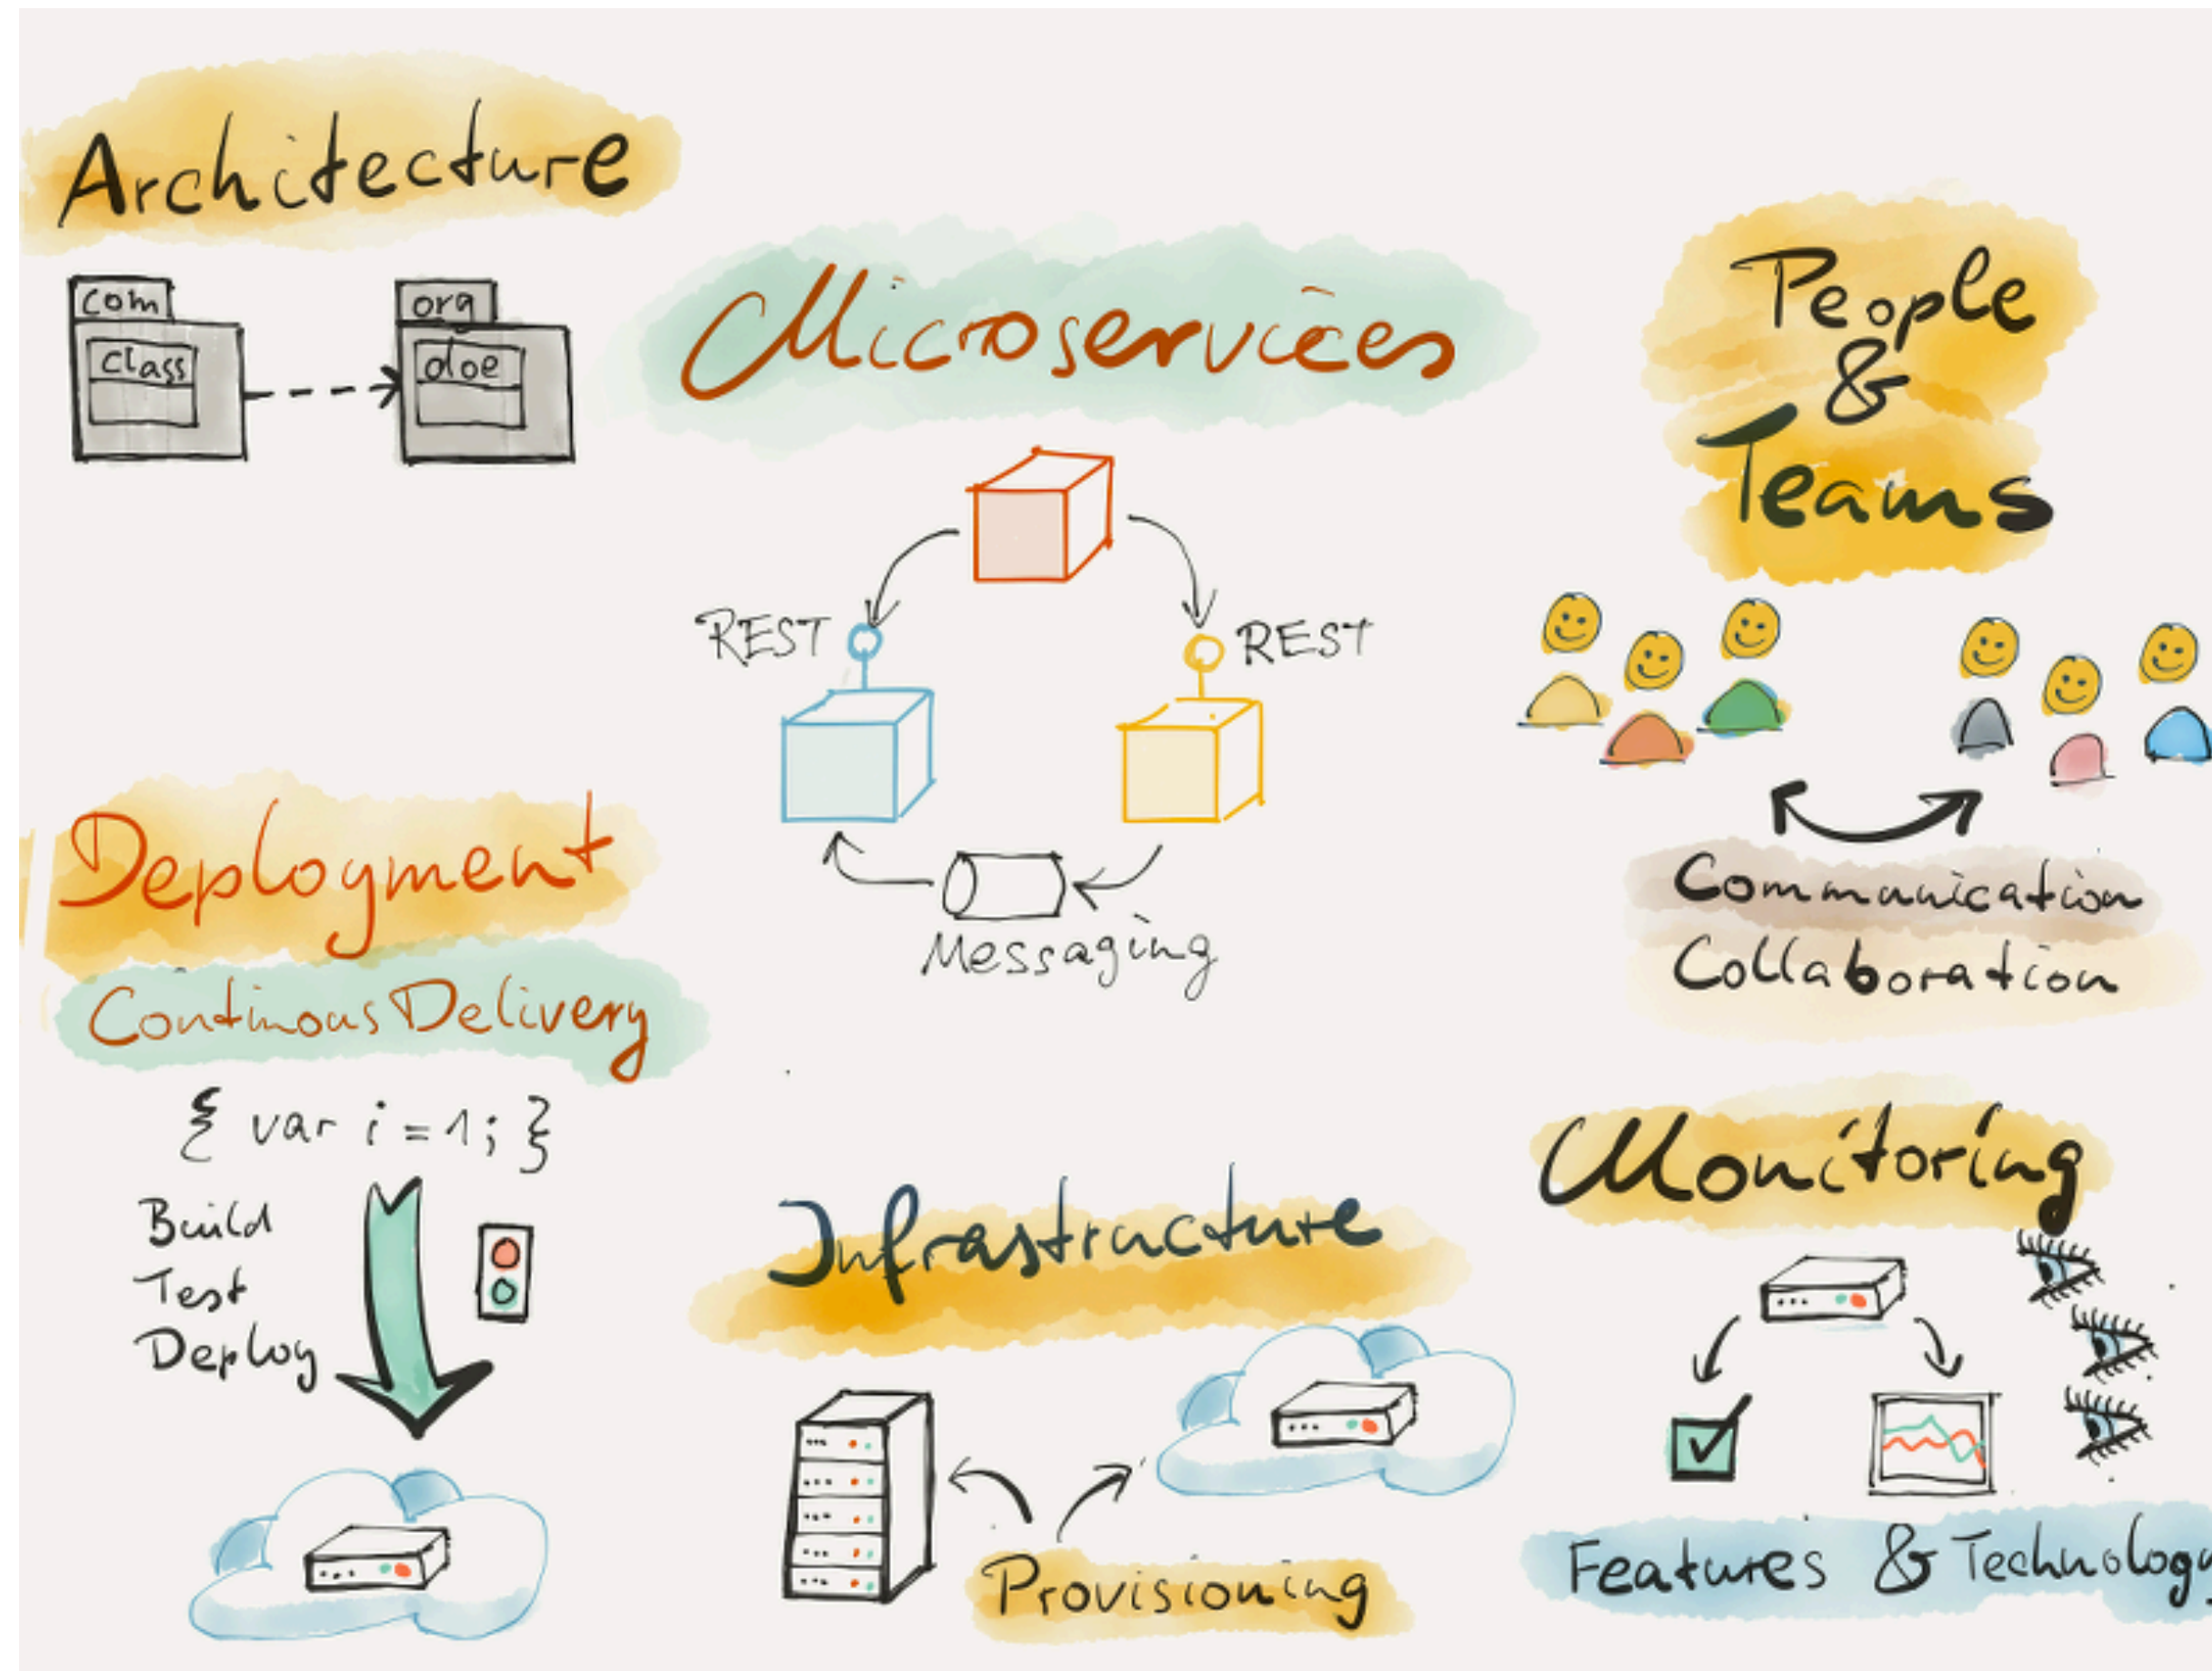 Architecture
com
class
org
doe
Microservices
REST
REST
Messaging
People
&
Teams
Communication
Collaboration
Deployment
Continous Delivery
{ var i = 1; }
Build
Test
Deploy
Infrastructure
Provisioning
Monitoring
Features & Technology